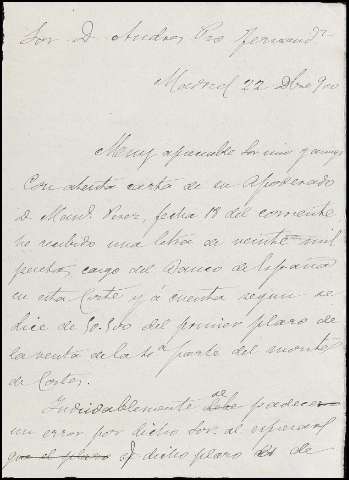 Sor. D. Andres Pro Fernandz
Madrid 22 Dbre 900
Muy apreciable Sor mio y amigo
Con atenta carta de su Apoderado
D. Manl. Perez, fecha 18 del corriente,
he recibido una letra de veinte mil
pesetas, cargo del Banco de España
en esta Corte y á cuenta segun se
dice de 50.500 del primer plazo de
la venta de la 10ª parte del monte
de Cortes.
Indudablemente debe padecer
un error por dicho Sor. al expresar
que el plazo q dicho plazo es de